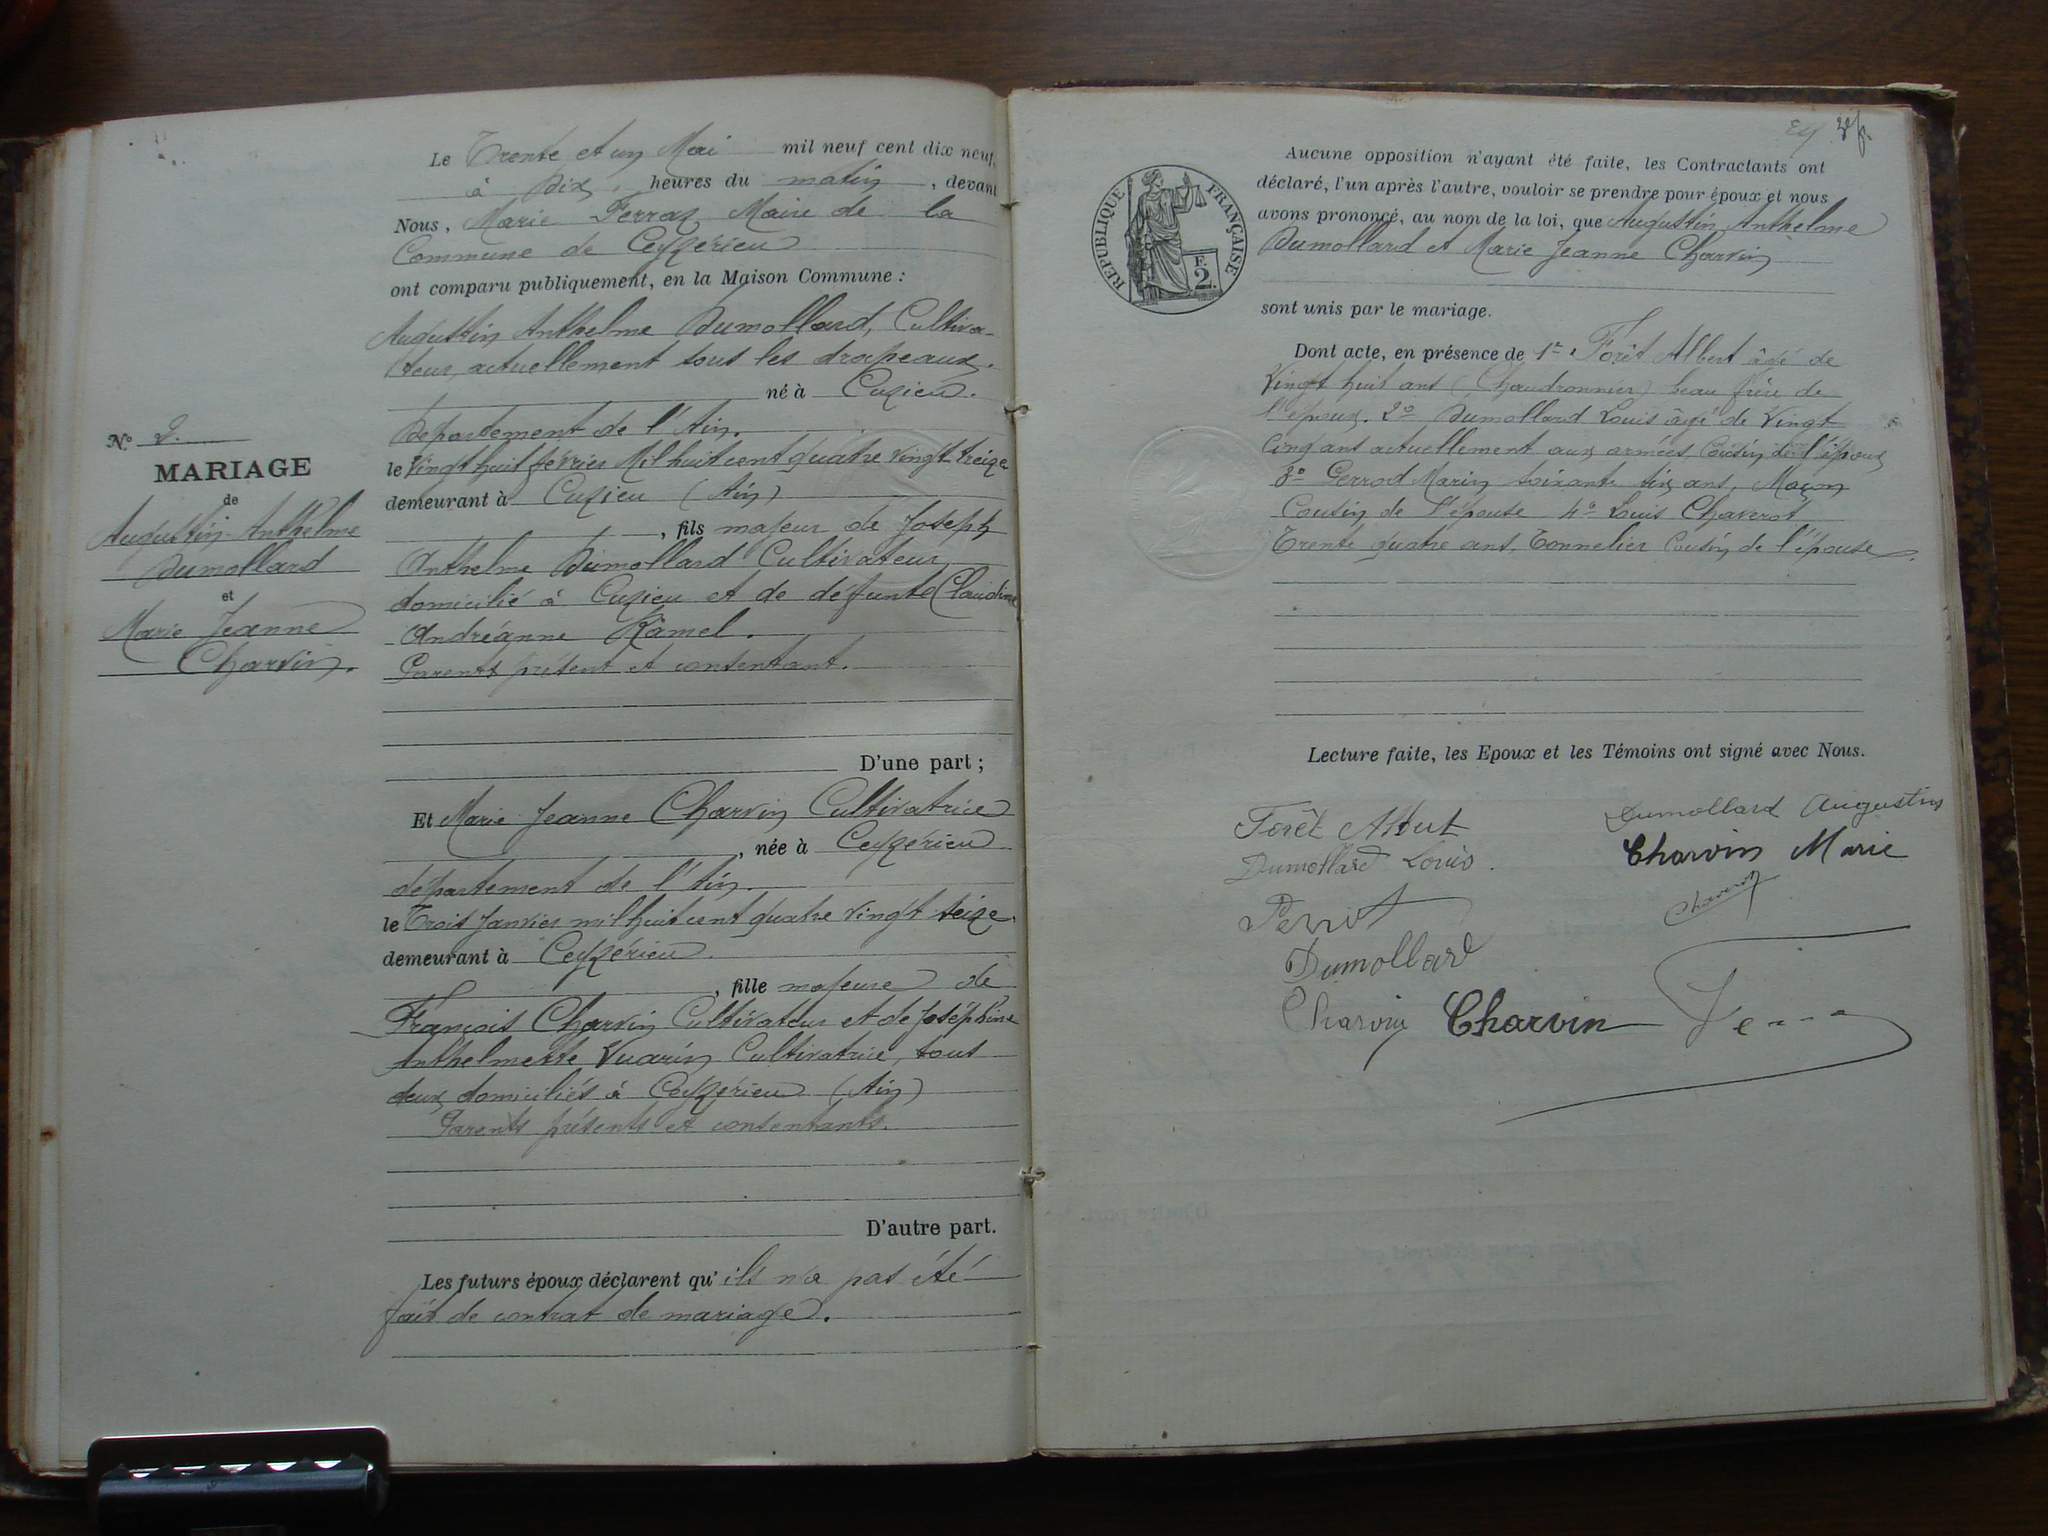 Le Trente et un Mai mil neuf cent dix neuf,
à Dix heures du matin, devant
Nous, Marie Ferraz Maire de la
Commune de Ceyzérieu
ont comparu publiquement, en la Maison Commune :
Augustin Anthelme Dumollard, Cultiva-
teur, actuellement sous les drapeaux.
né à Cuzieu.
Département de l'Ain.
le Vingt huit février Mil huit cent quatre vingt treize
demeurant à Cuzieu (Ain)
, fils majeur de Joseph
Anthelme Dumollard Cultivateur
domicilié à Cuzieu et de défunte Claudine
Andréanne Ramel.
Parents présent et consentant.
D'une part ;
N° 2.
MARIAGE
de
Augustin Anthelme
Dumollard
et
Marie Jeanne
Charvin.
Et Marie Jeanne Charvin Cultivatrice
, née à Ceyzérieu
département de l'Ain.
le Trois Janvier mil huit cent quatre vingt seize
demeurant à Ceyzérieu.
, fille majeure de
François Charvin Cultivateur et de Joséphine
Anthelmette Vuarin Cultivatrice, tous
deux domiciliés à Ceyzérieu (Ain)
Parents présents et consentants.
D'autre part.
Les futurs époux déclarent qu'ils n'a pas été
fait de contrat de mariage.
RÉPUBLIQUE FRANÇAISE
F.
2.
Aucune opposition n'ayant été faite, les Contractants ont
déclaré, l'un après l'autre, vouloir se prendre pour époux et nous
avons prononcé, au nom de la loi, que Augustin Anthelme
Dumollard et Marie Jeanne Charvin
sont unis par le mariage.
Dont acte, en présence de 1° Forêt Albert âgé de
Vingt huit ans (Chaudronnier) beau frère de
l'époux. 2° Dumollard Louis âgé de Vingt
Cinq ans actuellement aux armées Cousin de l'époux
3° Marin soixante six ans, Maçon
Cousin de l'épouse 4° Louis Chaverot
Trente quatre ans, Tonnelier Cousin de l'épouse.
Lecture faite, les Epoux et les Témoins ont signé avec Nous.
Forêt Albert
Dumollard Augustin
Dumollard Louis.
Charvin Marie
Chaverot
Dumollard
Charvin Charvin